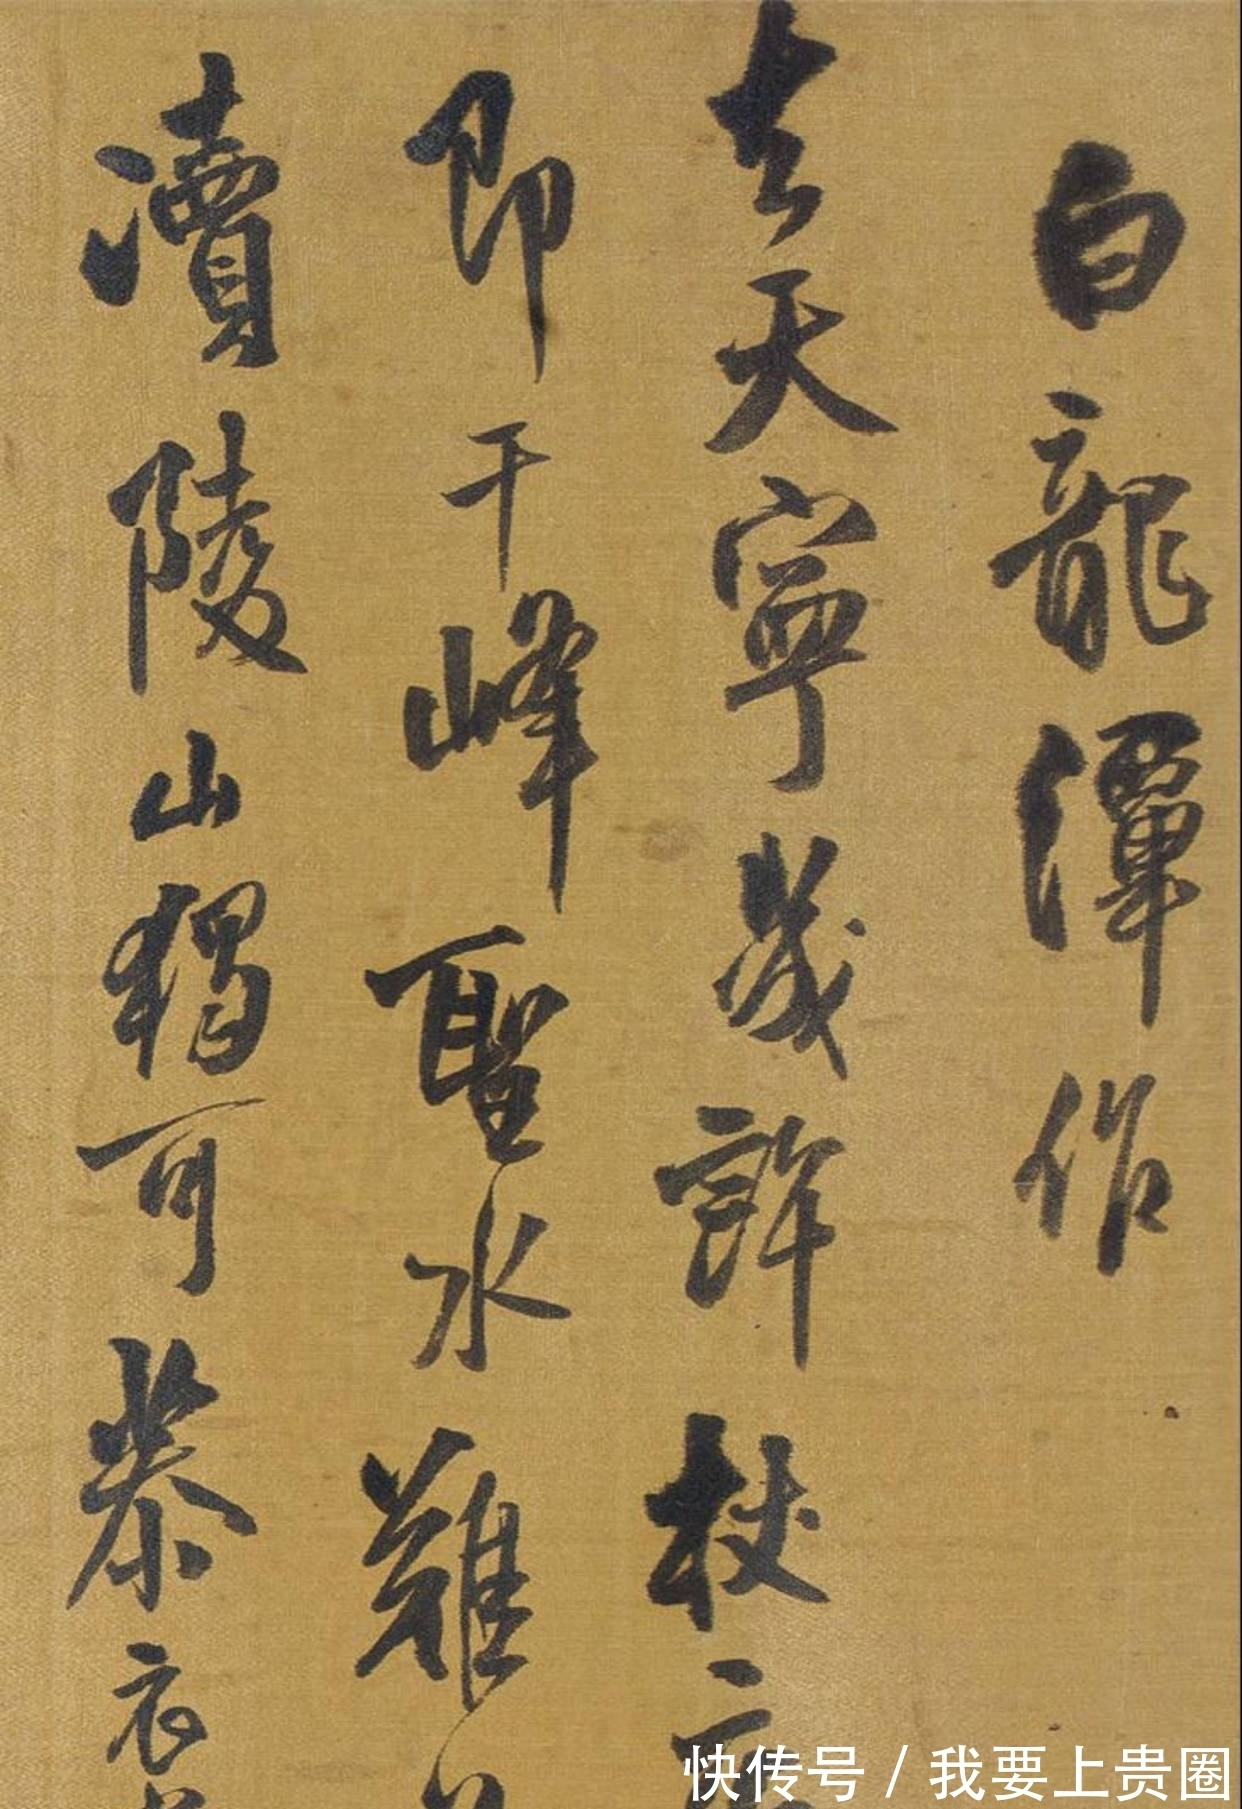 白龍潭作
去天寧幾許杖
即千峰聖水難
瀆陵山獨可恭衣
快传号 / 我要上贵圈